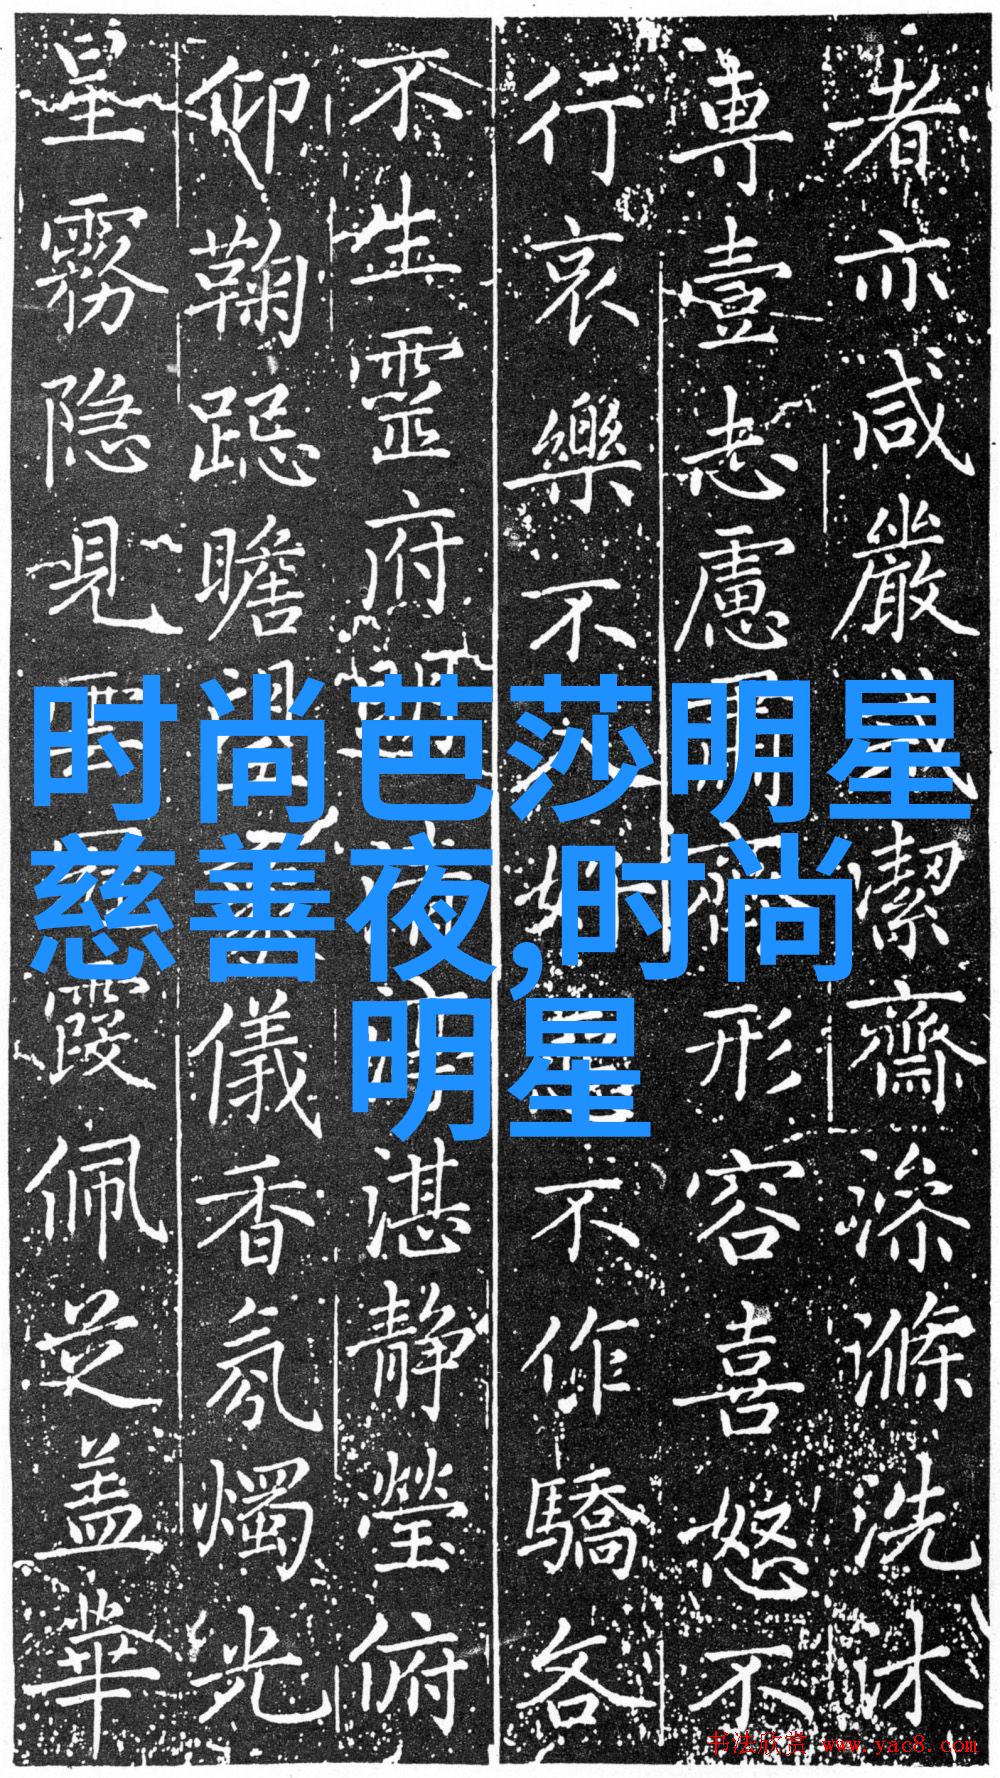 者亦咸嚴潔齋滌洗沐
專壹志慮齊形容喜怒不
行哀樂不不作驕各
不生靈府湛静瑩俯
仰鞠跽瞻儀香氛燭光
星霧隐見雲霞佩芝盖華
时尚芭莎明星
慈善夜,时尚
明星
书法欣赏 www.yac8.com